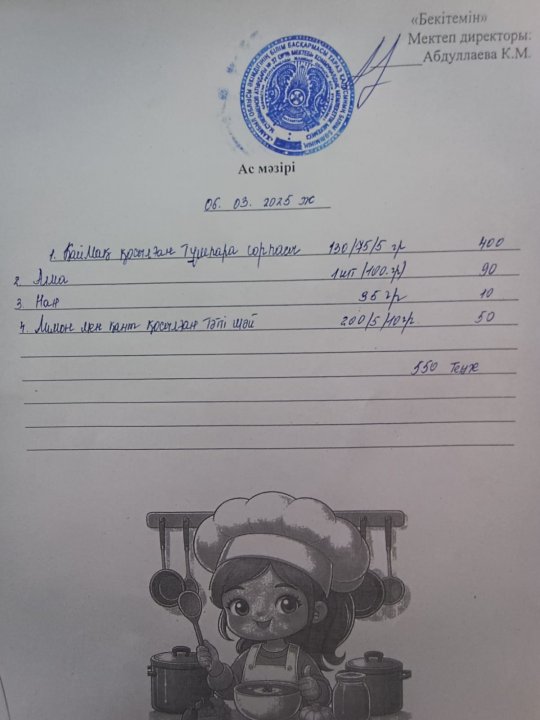 «Бекітемін»
Мектеп директоры:
Абдуллаева К.М.
Ас мәзірі
06. 03. 2025 ж
1. Қаймақ қосылған Тұшпара сорпасы 130/75/5 гр 400
2. Алма 1шт/100.гр) 90
3. Нан 35 гр 10
4. Лимон мен қант қосылған тәтті шәй 200/5/10гр 50
550 Теңге